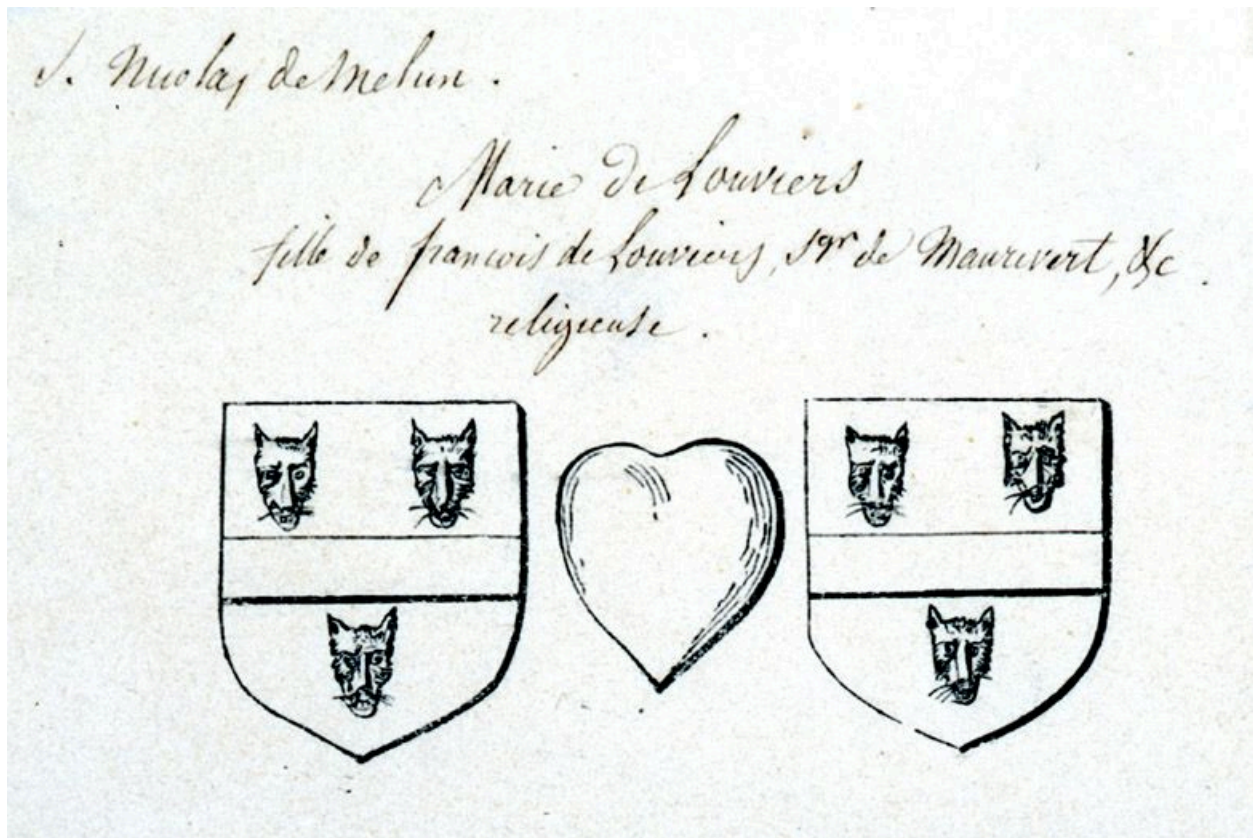 S. Nicolas de Melun.
Marie de Louviers
fille de francois de Louviers, Sgr de Maurevert, &c.
religieuse.